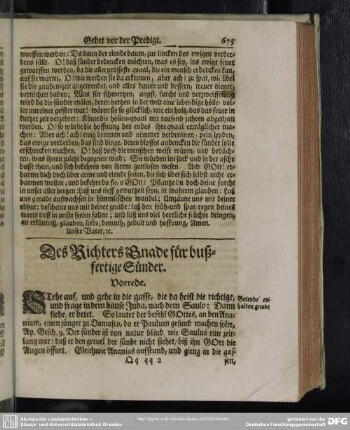 Gebet vor der Predigt. 675
worffen werden: Da dann der elende baum, zur lincken des ewigen verder-
bens fällt. O! daß sünder bedencken möchten, was es sey, ins ewige feuer
geworffen werden, da die allergrösseste quaal, die ein mensch erdencken kan,
auf sie warte. O! wie werden sie da erkennen, aber ach! zu spat, wie übel
sie die gnadenzeit angewendet, und alles bauen und bessern, treuer diener,
verachtet haben! Was für schmertzen, angst, furcht und verzweiffelung
wird da die sünder quälen, deren hertzen in der welt eine lebendige hölle voll
feuer war! wären sie so glücklich, wie ein holtz, daß das feuer in
kurtzer zeit verzehret! Könte die höllen-quaal mit tausend jahren abgethan
werden. O! so würde die hoffnung das ende ihre quaal erträglicher ma-
chen: Aber ach! ach! ewig brennen und nimmer verbrennen; pein leyden,
das ewige verderben, das sind dinge, deren blosses andencken die sünder solte
erschrecken machen. O! daß doch die menschen weise wären, und bedäch-
ten, was ihnen zuletzt begegnen wird; Sie würden im sack und in der asche
busse thun, und sich bekehren von ihrem gottlosen wesen. Ach GOtt! er-
barme dich doch über arme und elende seelen, die sich über sich selbst nicht er-
barmen wollen, und bekehre du sie, o GOtt! Pflantze du doch deine furcht
in unser aller hertzen: Laß uns tief gewurtzelt seyn, in wahrem glauben. Laß
uns gerade aufwachsen in himmlischen wandel: Umzäune uns mit deiner
obhut: bescheine uns mit deiner gnade: laß den früh- und spat regen deines
worts tieff in unsre seelen fallen; und laß uns viel herrliche früchte bringen,
an erkäntniß, glauben, liebe, demuth, gedult und hoffnung, Amen.
Unser Vater, ꝛc.
Des Richters Gnade für buß-
fertige Sünder.
Vorrede.
STehe auf, und gehe in die gasse, die da heist die richtige,
und frage in dem hause Juda, nach dem Saulo: Dann
siehe, er betet. So lautet der befehl GOttes, an den Ana-
niam, einen jünger zu Damasco, da er Paulum gesund machen solte,
Ap. Gesch. 9. Der sünder ist von natur blind, wie Saulus eine zeit-
lang war: daß er den greuel der sünde nicht siehet, biß ihm GOtt die
Augen öffnet. Gleichwie Ananias aufstund, und gieng in die gas-
Betende er-
halten gnade
Qqqq 2
sen,